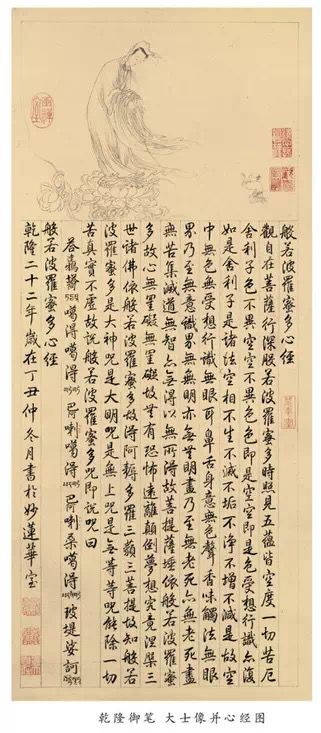 般若波羅蜜多心經
觀自在菩薩行深般若波羅蜜多時照見五蘊皆空度一切苦厄
舍利子色不異空空不異色色即是空空即是色受想行識亦復
如是舍利子是諸法空相不生不滅不垢不淨不增不減是故空
中無色無受想行識無眼耳鼻舌身意無色聲香味觸法無眼
界乃至無意識界無無明亦無無明盡乃至無老死亦無老死盡
無苦集滅道無智亦無得以無所得故菩提薩埵依般若波羅蜜
多故心無罣礙無罣礙故無有恐怖遠離顛倒夢想究竟涅槃三
世諸佛依般若波羅蜜多故得阿耨多羅三藐三菩提故知般若
波羅蜜多是大神咒是大明咒是無上咒是無等等咒能除一切
苦真實不虛故說般若波羅蜜多咒即說咒曰
噶得噶得 喇噶得 喇桑噶得 玻提娑訶
般若波羅蜜多心經
乾隆二十二年歲在丁丑仲冬月書於妙蓮華室
乾隆御笔 大士像并心经图